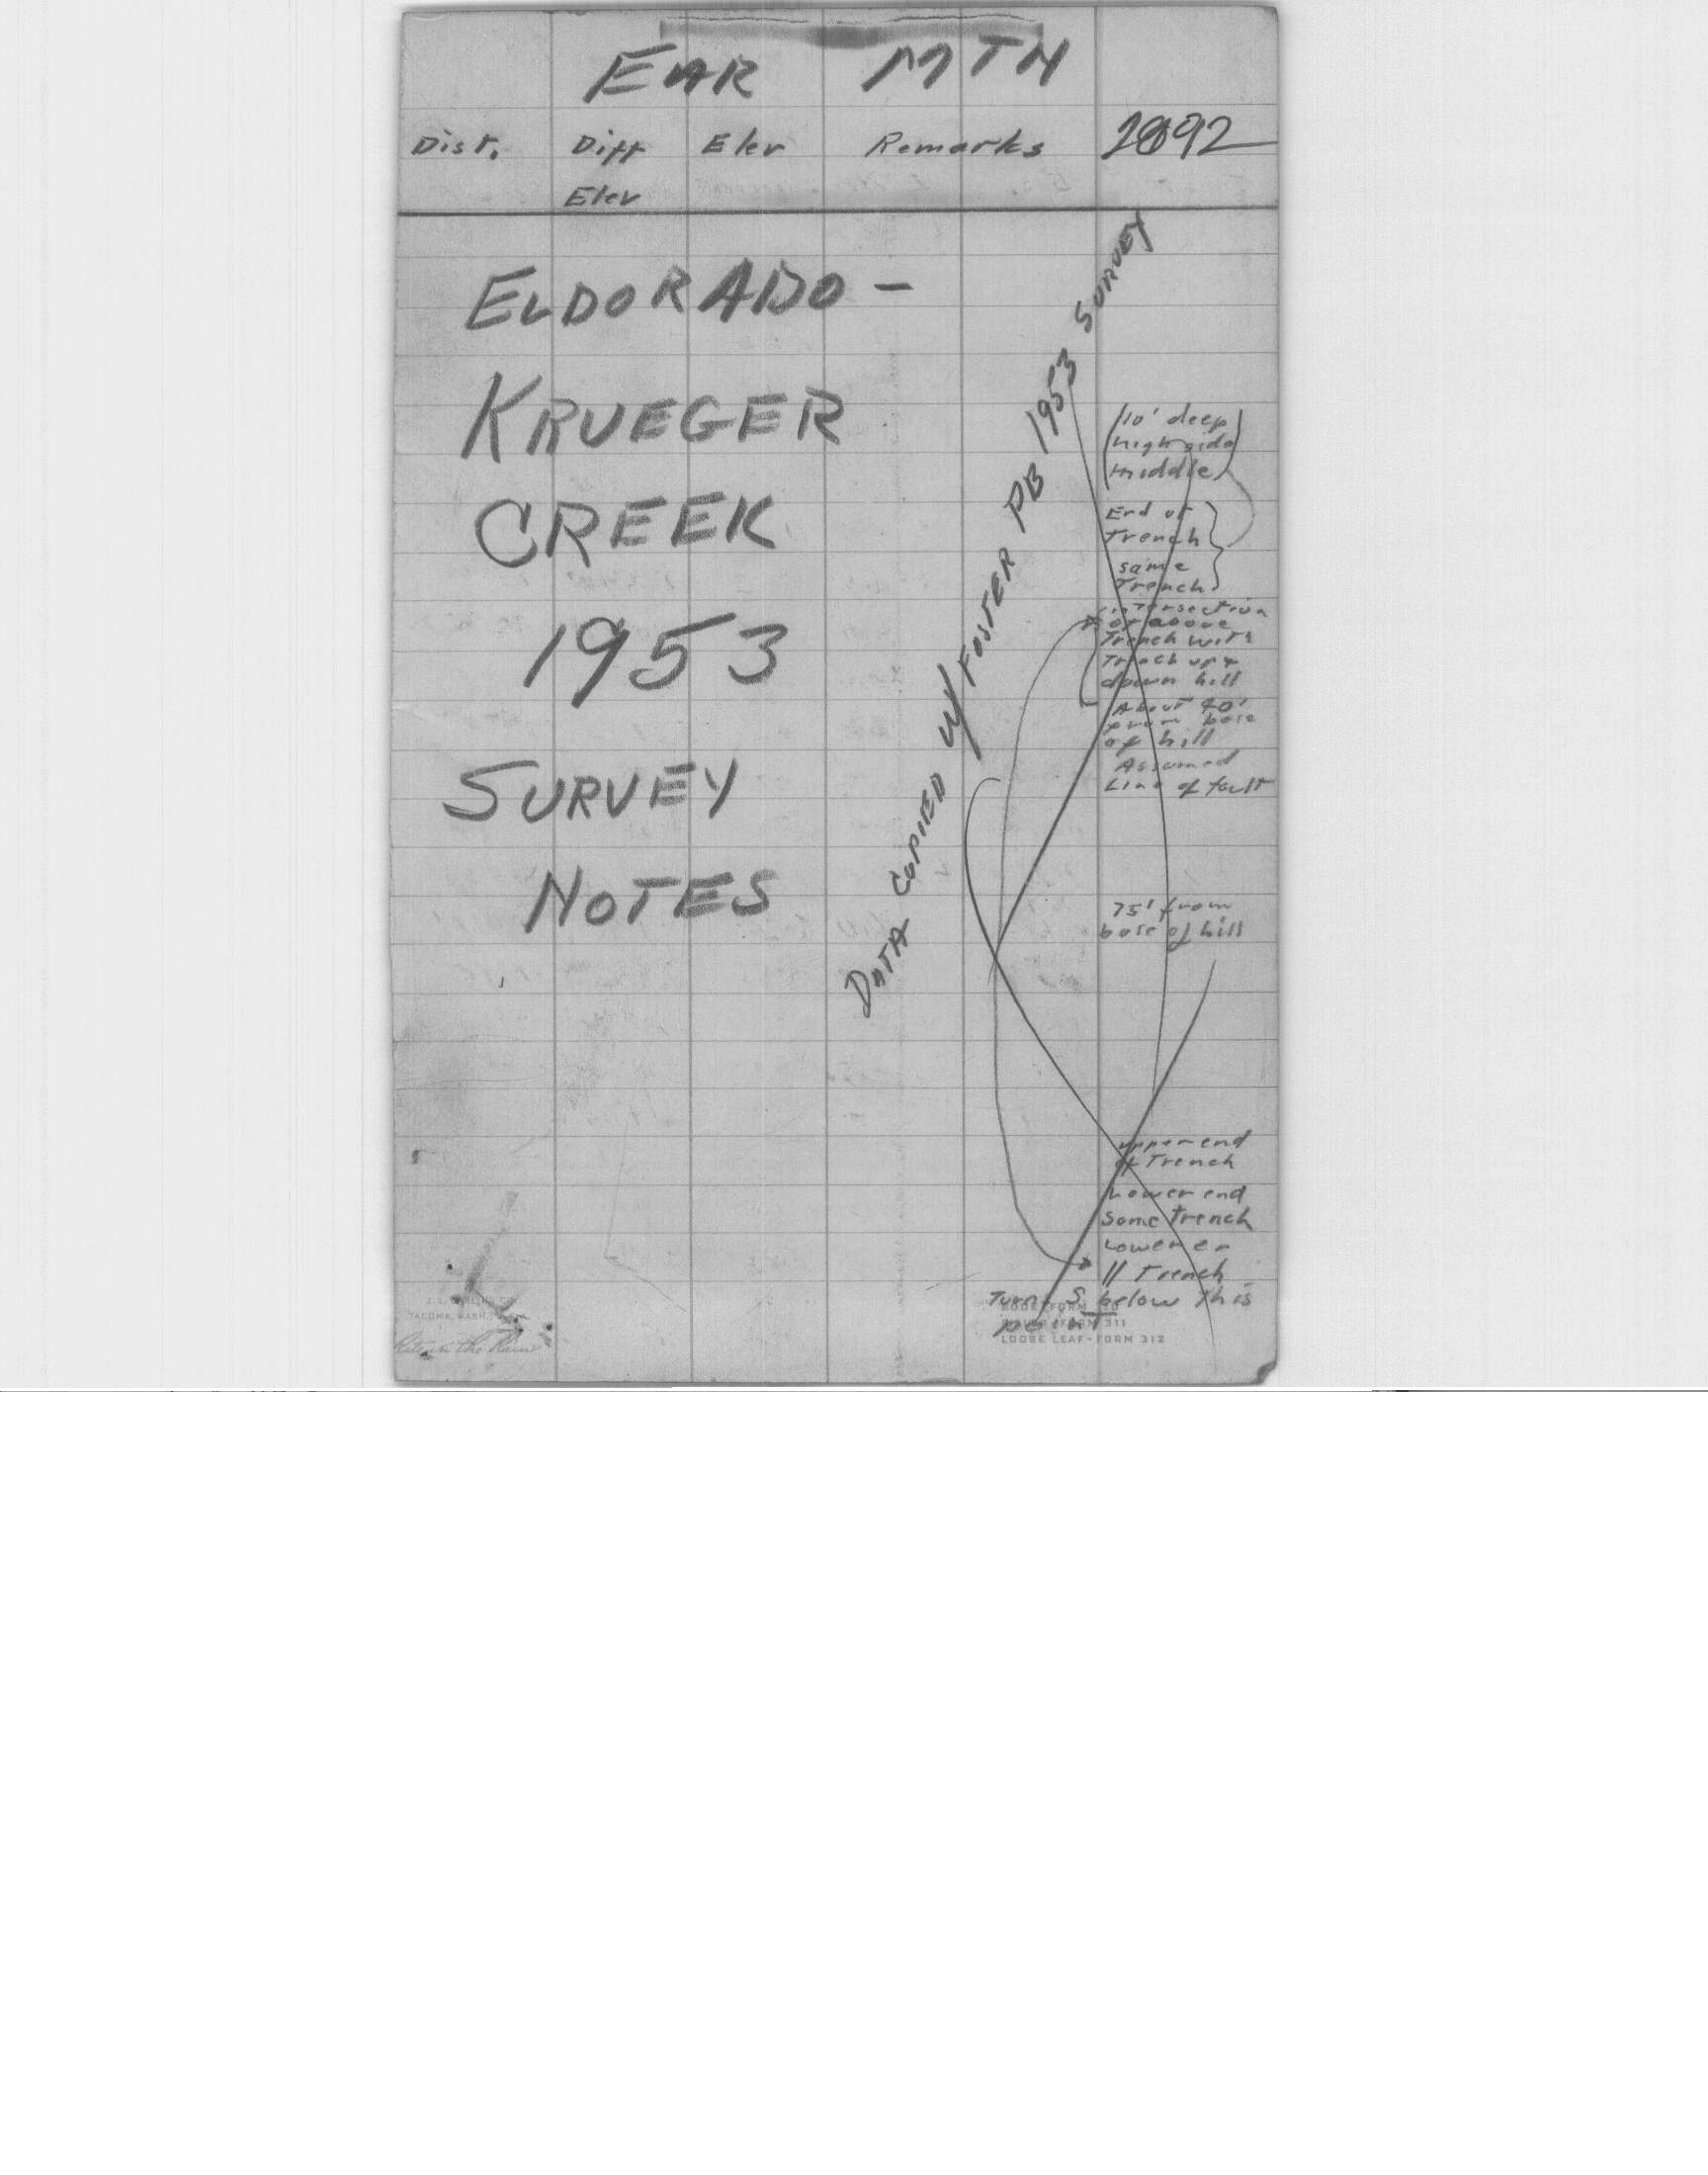 EAR MTN
Dist. Diff Elev Remarks 2892
Elev
ELDORADO -
KRUEGER
CREEK
1953
SURVEY
NOTES
DATA COPIED W/ FOSTER PB 1953 SURVEY
(10' deep)
(high side)
(middle)
End of
trench
same
Trench
intersection
of above
Trench with
Trench up &
down hill
About 40'
from base
of hill
Assumed
Line of fault
75' from
base of hill
upper end
of Trench
Lower end
Same trench
Lower en
// Trench
Turns S below this
point
TACOMA, WASH.
FORM 311
LOOSE LEAF-FORM 312